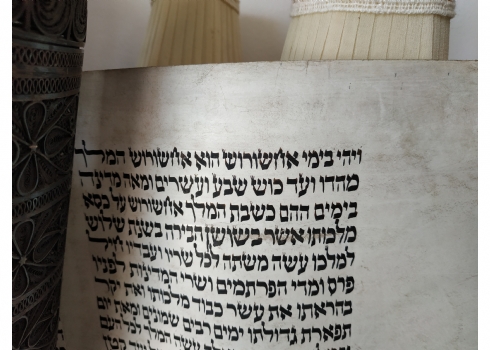 ויהי בימי אחשורוש הוא אחשורוש המלך
מהדו ועד כוש שבע ועשרים ומאה מדינה
בימים ההם כשבת המלך אחשורוש על כסא
מלכותו אשר בשושן הבירה בשנת שלוש
למלכו עשה משתה לכל שריו ועבדיו חיל
פרס ומדי הפרתמים ושרי המדינות לפניו
בהראתו את עשר כבוד מלכותו ואת יקר
תפארת גדולתו ימים רבים שמונים ומאת יום
עשה המלך לכל העם